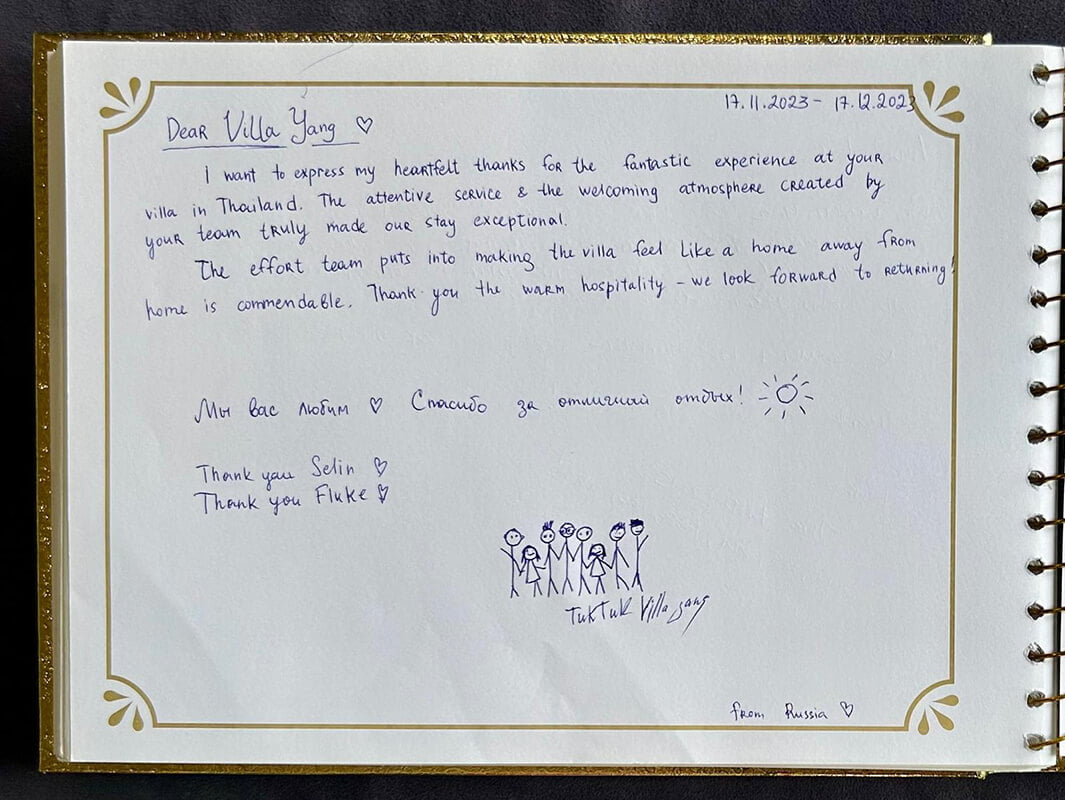 17.11.2023 - 17.12.2023
Dear Villa Yang ♡
I want to express my heartfelt thanks for the fantastic experience at your
villa in Thailand. The attentive service & the welcoming atmosphere created by
your team truly made our stay exceptional.
The effort team puts into making the villa feel like a home away from
home is commendable. Thank you the warm hospitality - we look forward to returning!
Мы вас любим ♡ Спасибо за отличный отдых!
Thank you Selin ♡
Thank you Fluke ♡
TukTuk Villa yang
from Russia ♡